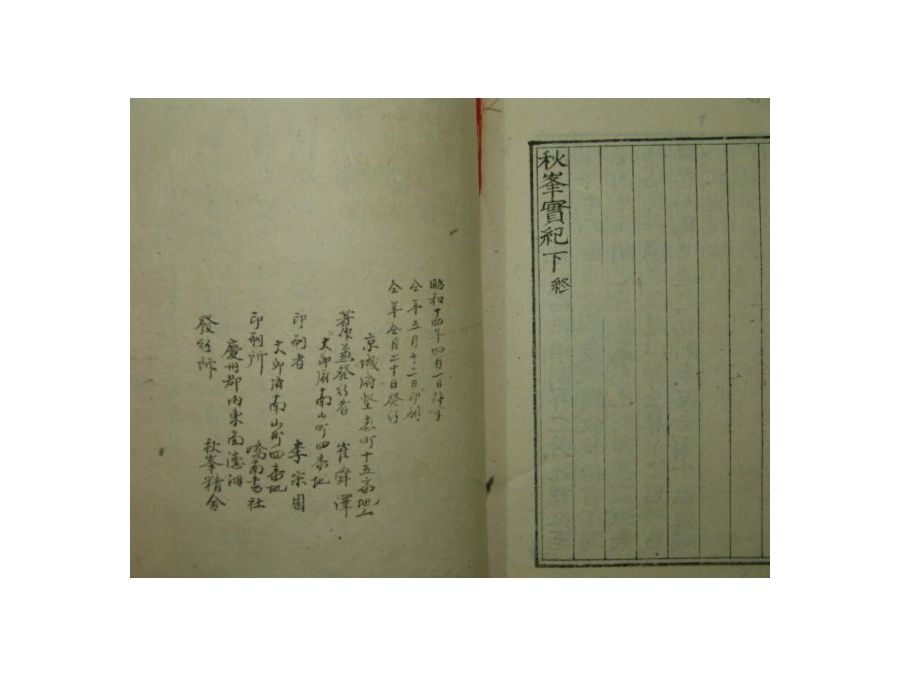 秋峯實紀下 終
昭和十四年四月一日許可
仝年五月十二日印刷
仝年仝月二十日發行
京城府堅志町十五番地ノ
著作兼發行者 崔舜澤
大邱府南山町四番地
印刷者 李宗因
大邱府南山町四番地
印刷所 嶠南書社
慶州郡內東面德洞
發行所 秋峯精舍